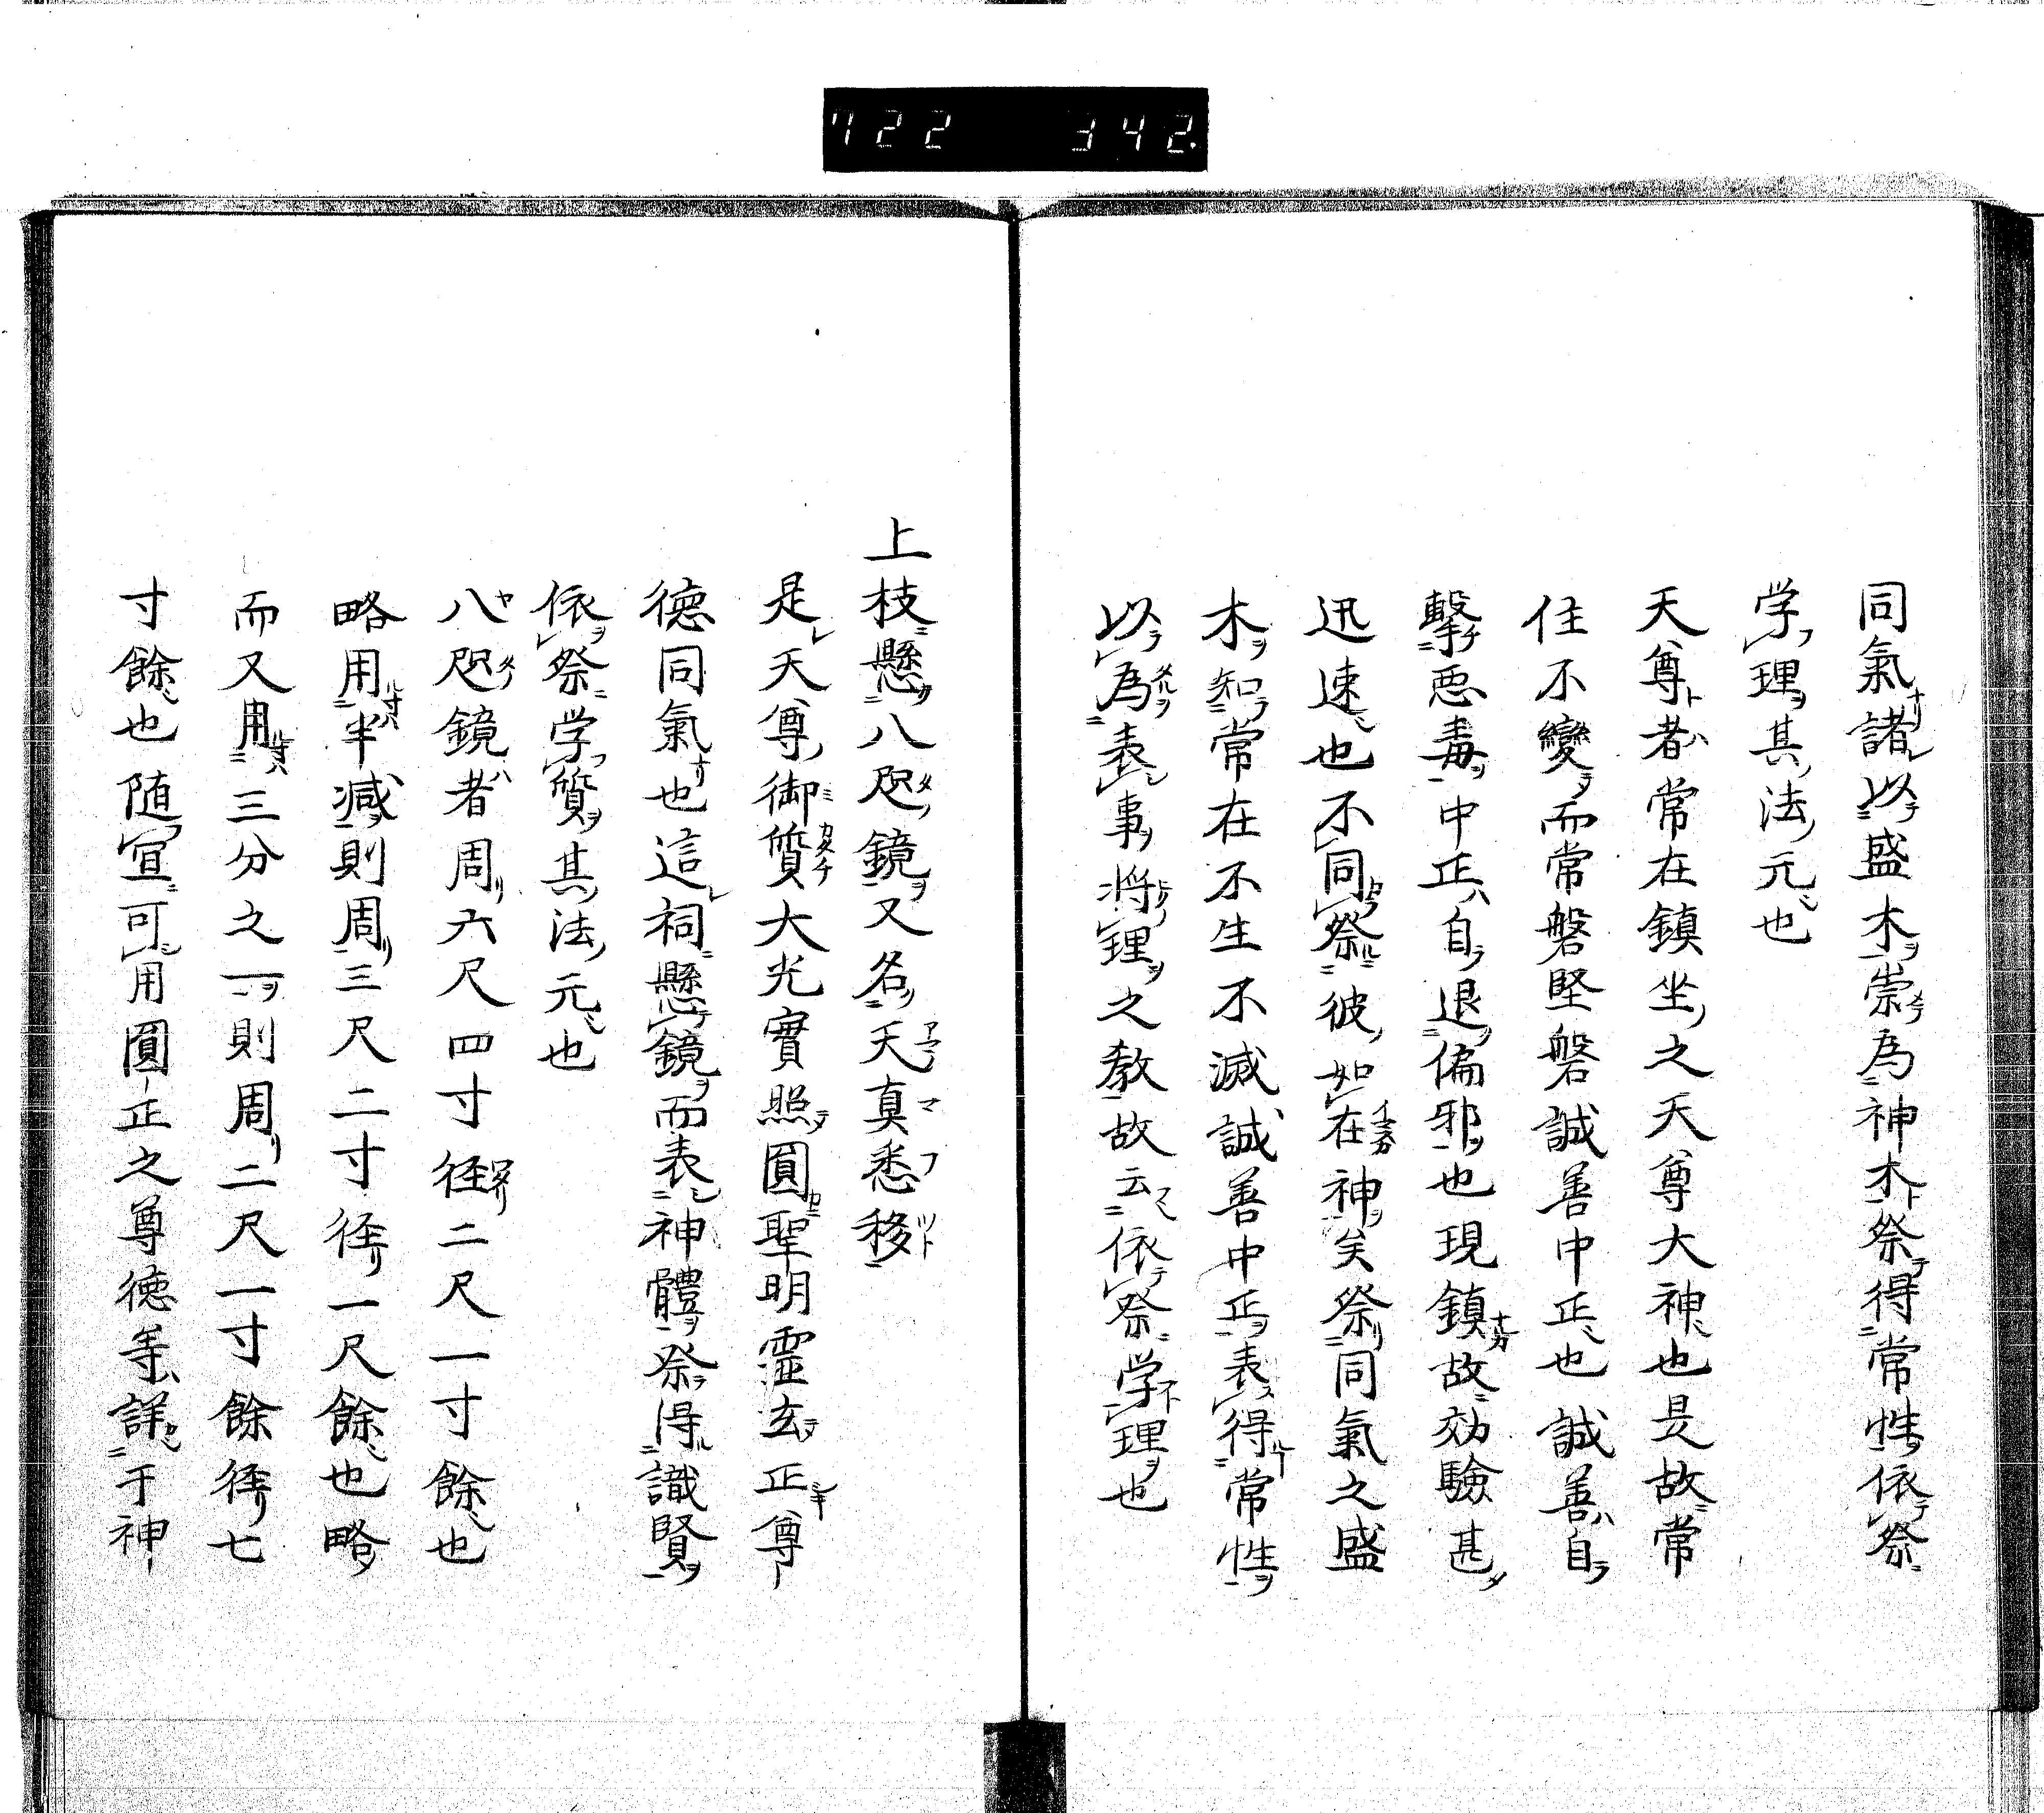 722 342
同氣諸以盛木崇為神木祭得常性依祭
学理其法元也
天尊者常在鎮坐之天尊大神也是故常
住不變而常磐堅磐誠善中正也誠善自
擊悪毒中正自退偏邪也現鎮故効驗甚
迅速也不同祭彼如在神矣祭同氣之盛
木知常在不生不滅誠善中正表得常性
以為表事将理之教故云依祭学理也
上枝懸八咫鏡又名天真悉移
是天尊御質大光實照圓聖明霊玄正尊
徳同氣也這祠懸鏡而表神體祭得識賢
依祭学質其法元也
八咫鏡者周六尺四寸径二尺一寸餘也
略用半減則周三尺二寸径一尺餘也略
而又用三分之一則周二尺一寸餘径七
寸餘也随宜可用圓正之尊徳等詳于神